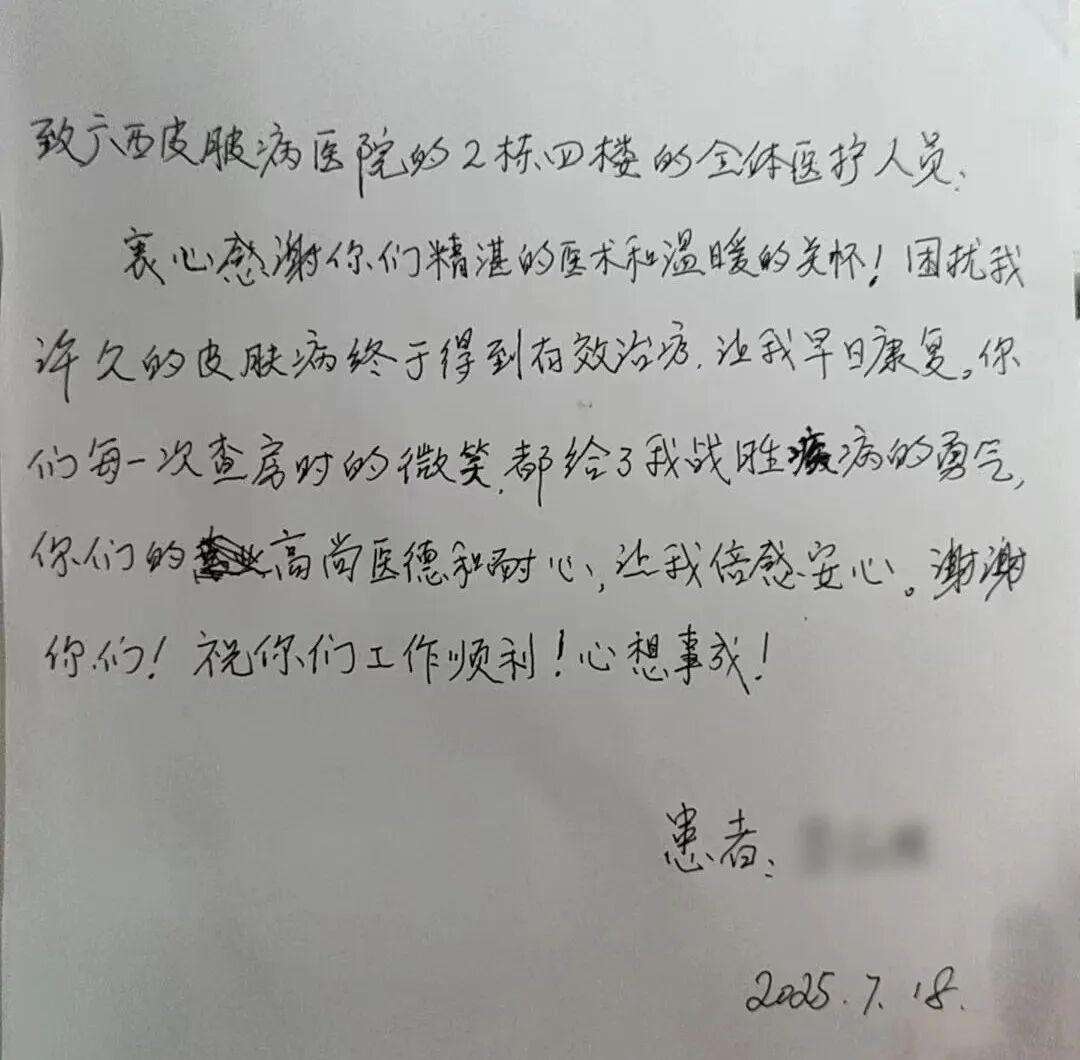 致广西皮肤病医院的2栋四楼的全体医护人员:
衷心感谢你们精湛的医术和温暖的关怀！困扰我
许久的皮肤病终于得到有效治疗，让我早日康复。你
们每一次查房时的微笑，都给了我战胜疾病的勇气，
你们的高尚医德和耐心，让我倍感安心。谢谢
你们！祝你们工作顺利！心想事成！
患者：
2025.7.18.